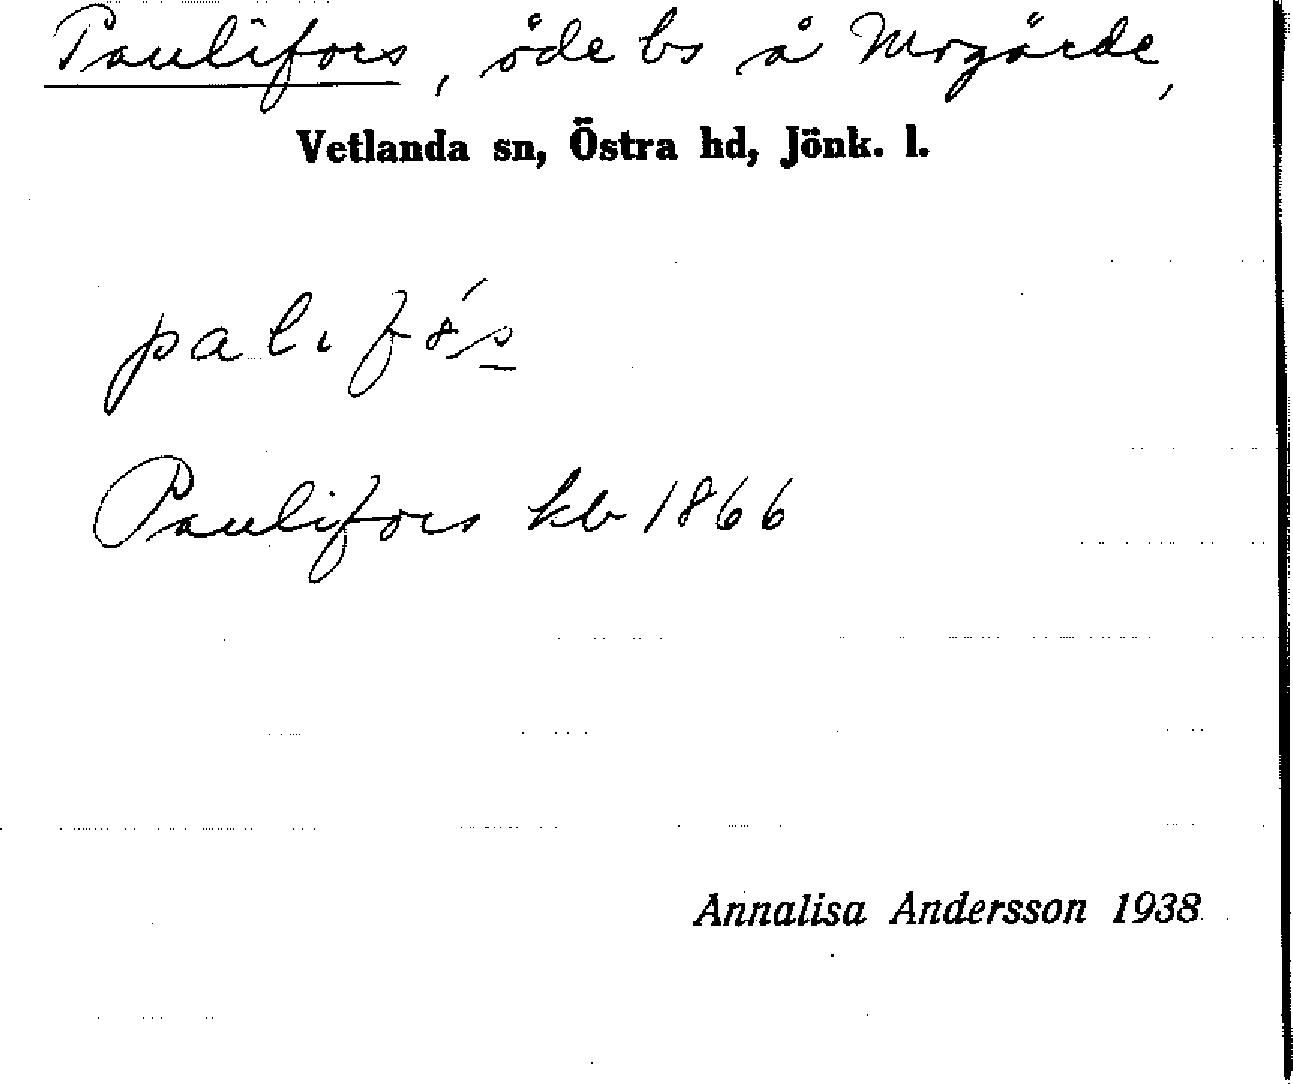 Paulifors, öde bs å Mogärde,
Vetlanda sn, Östra hd, Jönk. l.
Paulifors kb 1866
Annalisa Andersson 1938